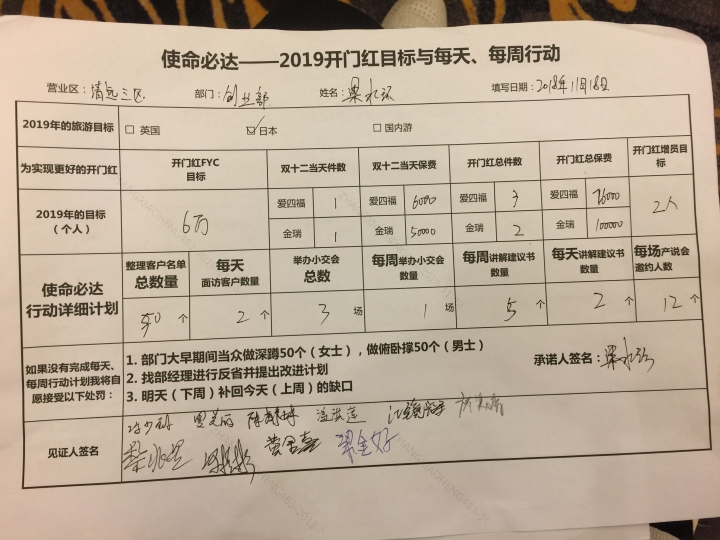 使命必达——2019开门红目标与每天、每周行动
营业区：清远三区 部门：创业部 姓名：梁水 填写日期：2018年11月18日
2019年的旅游目标 □ 英国 ☑日本 □ 国内游
为实现更好的开门红 开门红FYC目标 双十二当天件数 双十二当天保费 开门红总件数 开门红总保费 开门红增员目标
2019年的目标（个人） 6万 爱四福 1 爱四福 6000 爱四福 3 爱四福 26000 2人
金瑞 1 金瑞 50000 金瑞 2 金瑞 100000
使命必达行动详细计划 整理客户名单总数量 每天面访客户数量 举办小交会总数 每周举办小交会数量 每周讲解建议书数量 每天讲解建议书数量 每场产说会邀约人数
50 个 2 个 3 场 1 场 5 个 2 个 12 个
如果没有完成每天、每周行动计划我将自愿接受以下处罚：
1. 部门大早期间当众做深蹲50个（女士），做俯卧撑50个（男士）
2. 找部经理进行反省并提出改进计划
3. 明天（下周）补回今天（上周）的缺口
承诺人签名：梁水
见证人签名